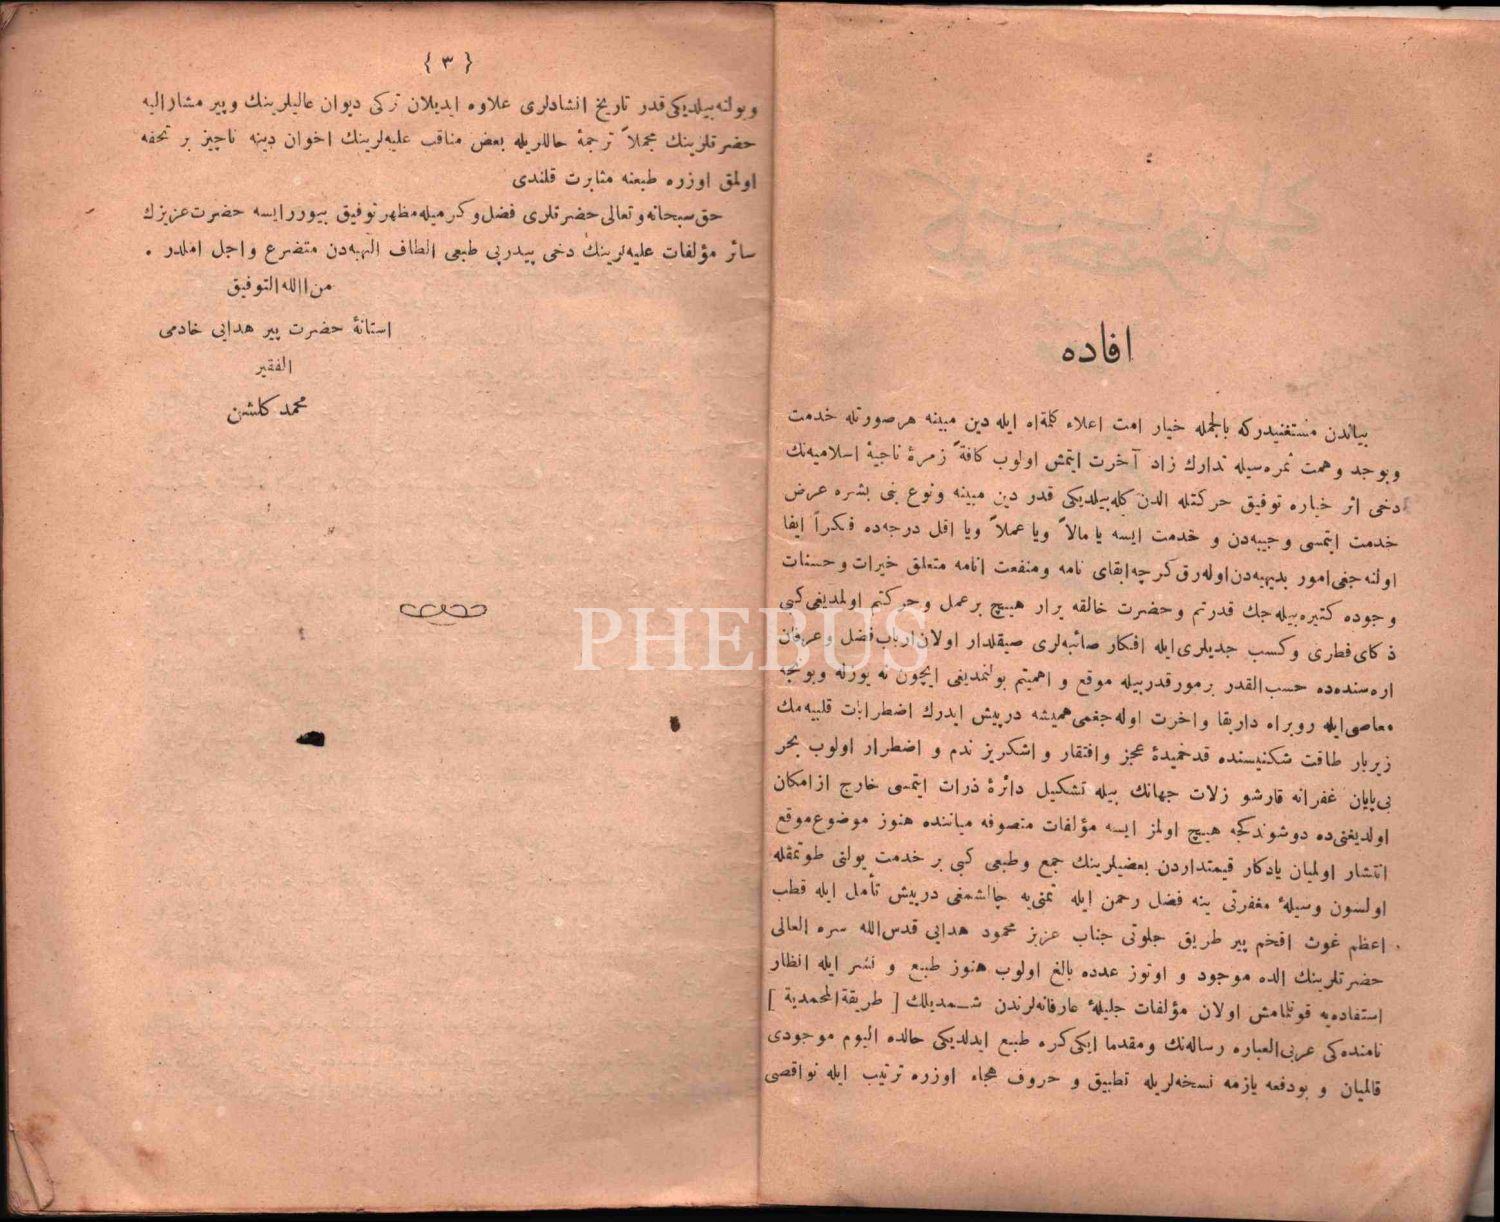 افاده
بیاندن مستغنیدرکه بالجمله خیار امت اعلاء کلمةاه ایله دین مبینه هرصورتله خدمت
وبوجد وهمت ثمره‌سیله تدارك زاد آخرت ایتمش اولوب كافةً زمرهٔ ناجیهٔ اسلامیه‌نك
دخی اثر خیاره توفیق حرکتله الدن کله‌بیلدیکی قدر دین مبینه ونوع بنی بشره عرض
خدمت ایتمسی وجیبه‌دن و خدمت ایسه یا مالاً ویا عملاً ویا اقل درجه‌ده فکراً ایفا
اولنه‌جغی امور بدیهیه‌دن اوله‌رق کرچه ابقای نامه ومنفعت انامه متعلق خیرات وحسنات
وجوده کتیره‌بیله‌جك قدرتم وحضرت خالقه یرار هیچ برعمل وحرکتم اولمدیغی کبی
ذکای فطری وکسب جدیلری ایله افکار صائبه‌لری صیقلدار اولان ارباب فضل وعرفان
اره‌سنده‌ده حسب القدر برمور قدربیله موقع و اهمیتم بولنمدیغی ایچون نه یوزله وبونجه
معاصی ایله روبراه داربقا واخرت اوله‌جغمی همیشه درپیش ایدرك اضطرابات قلبیه‌مك
زیربار طاقت شکنیسنده قدخمیدهٔ عجز وافتقار و اشکریز ندم و اضطرار اولوب بحر
بی‌پایان غفرانه قارشو زلات جهانك بیله تشکیل دائرهٔ ذرات ایتمسی خارج از امکان
اولدیغنی‌ده دوشوندکجه هیچ اولمز ایسه مؤلفات متصوفه میاننده هنوز موضوع موقع
انتشار اولمیان یادکار قیمتداردن بعضیلرینك جمع وطبعی کبی بر خدمت یولنی طوتمقله
اولسون وسیلهٔ مغفرتی ینه فضل رحمن ایله تمنی‌یه چالشمغی درپیش تأمل ایله قطب
اعظم غوث افخم پیر طریق جلوتی جناب عزیز محمود هدایی قدس الله سره العالی
حضرتلرینك الده موجود و اوتوز عدده بالغ اولوب هنوز طبع و نشر ایله انظار
استفاده‌یه قونلمامش اولان مؤلفات جلیلهٔ عارفانه‌لرندن شمدیلك [ طریقة المحمدیة ]
نامنده‌کی عربی العباره رساله‌نك ومقدما ایکی کره طبع ایدلدیکی حالده الیوم موجودی
قالمیان و بودفعه یازمه نسخه‌لریله تطبیق و حروف هجاء اوزره ترتیب ایله نواقصی
{ ٣ }
وبولنه‌بیلدیکی قدر تاریخ انشادلری علاوه ایدیلان ترکی دیوان عالیلرینك وپیر مشار الیه
حضرتلرینك مجملاً ترجمهٔ حاللریله بعض مناقب علیه‌لرینك اخوان دینه ناچیز بر تحفه
اولمق اوزره طبعنه مثابرت قلندی
حق سبحانه وتعالی حضرتلری فضل وکرمیله مظهر توفیق بیورر ایسه حضرت عزیزك
سائر مؤلفات علیه‌لرینك دخی پیدرپی طبعی الطاف الهیه‌دن متضرع واجل املدر .
من الله التوفیق
استانهٔ حضرت پیر هدایی خادمی
الفقیر
محمد کلشن
PHEBUS